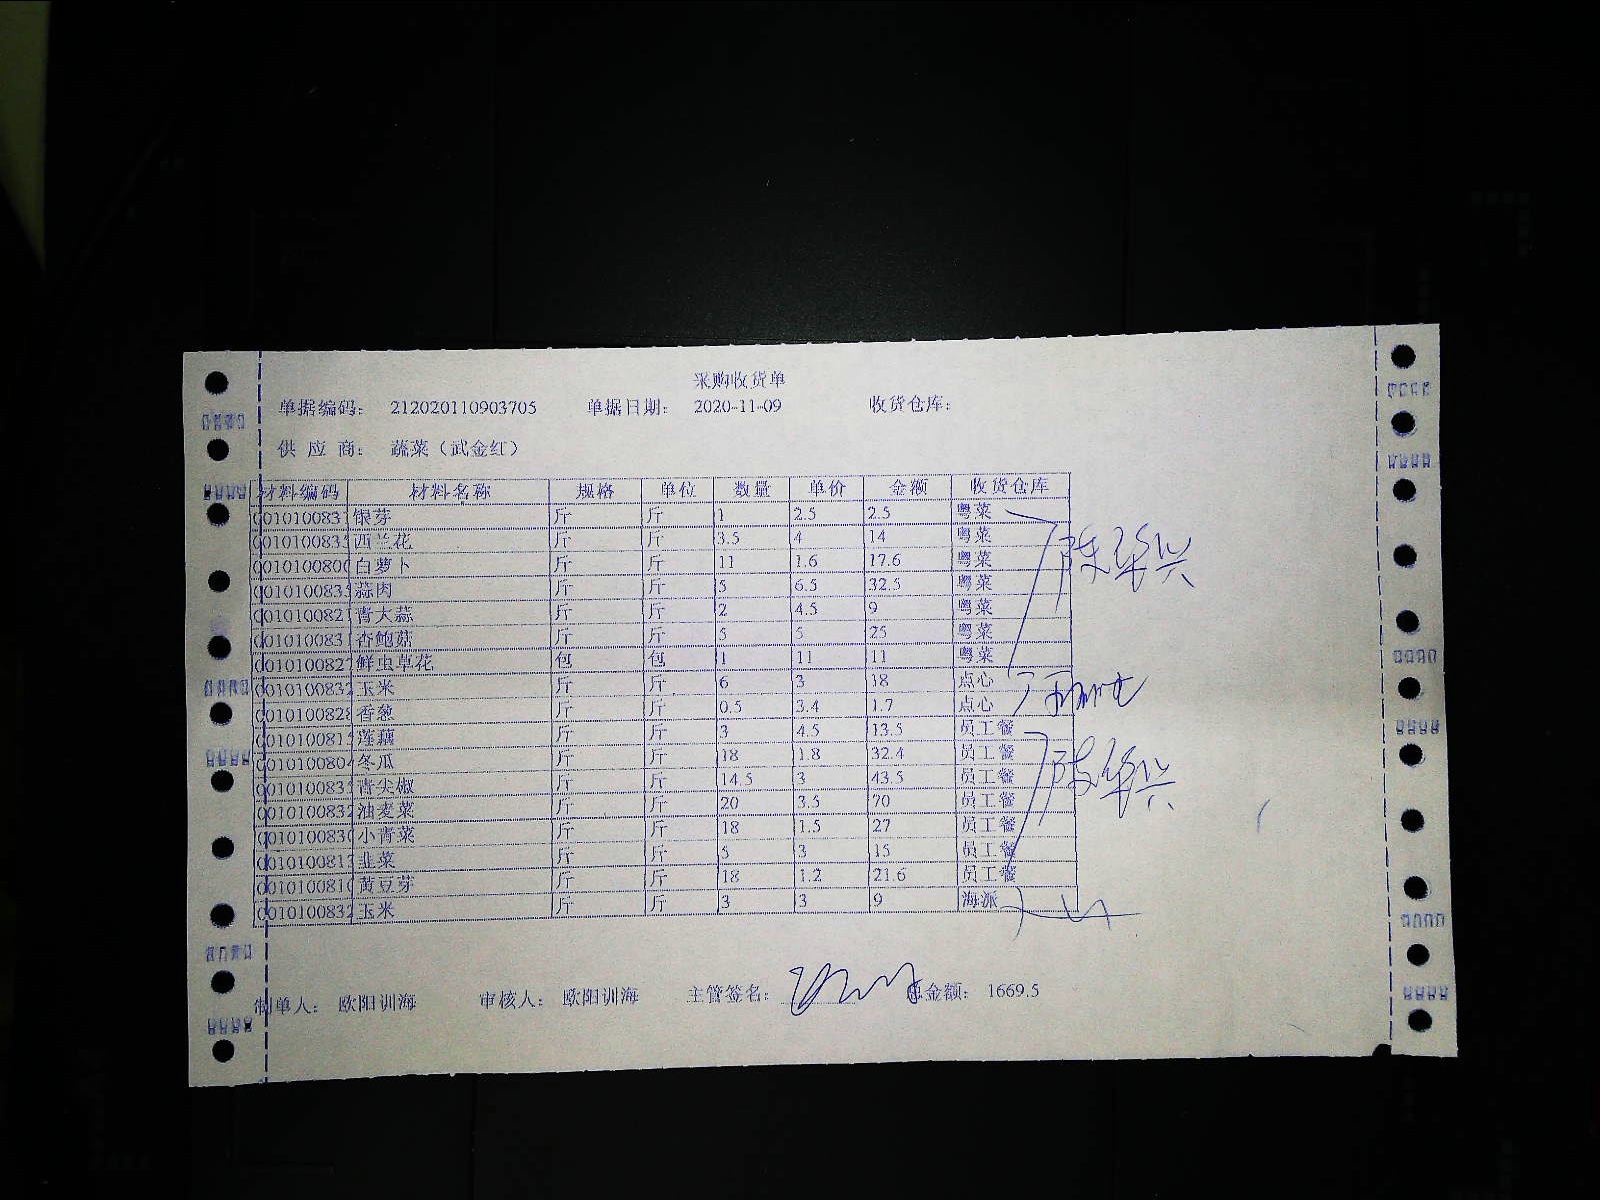 采购收货单
单据编码： 212020110903705 单据日期： 2020-11-09 收货仓库：
供 应 商： 蔬菜（武金红）
材料编码 材料名称 规格 单位 数量 单价 金额 收货仓库
001010083 银芽 斤 斤 1 2.5 2.5 粤菜
001010083 西兰花 斤 斤 3.5 4 14 粤菜
001010080 白萝卜 斤 斤 11 1.6 17.6 粤菜
001010083 蒜肉 斤 斤 5 6.5 32.5 粤菜
001010082 青大蒜 斤 斤 2 4.5 9 粤菜
001010083 杏鲍菇 斤 斤 5 5 25 粤菜
001010082 鲜虫草花 包 包 1 11 11 粤菜
001010083 玉米 斤 斤 6 3 18 点心
001010082 香葱 斤 斤 0.5 3.4 1.7 点心
001010081 莲藕 斤 斤 3 4.5 13.5 员工餐
001010080 冬瓜 斤 斤 18 1.8 32.4 员工餐
001010083 青尖椒 斤 斤 14.5 3 43.5 员工餐
001010083 油麦菜 斤 斤 20 3.5 70 员工餐
001010083 小青菜 斤 斤 18 1.5 27 员工餐
001010081 韭菜 斤 斤 5 3 15 员工餐
001010081 黄豆芽 斤 斤 18 1.2 21.6 员工餐
001010083 玉米 斤 斤 3 3 9 海派
陈华兴
陈华兴
制单人： 欧阳训海 审核人： 欧阳训海 主管签名： 总金额： 1669.5